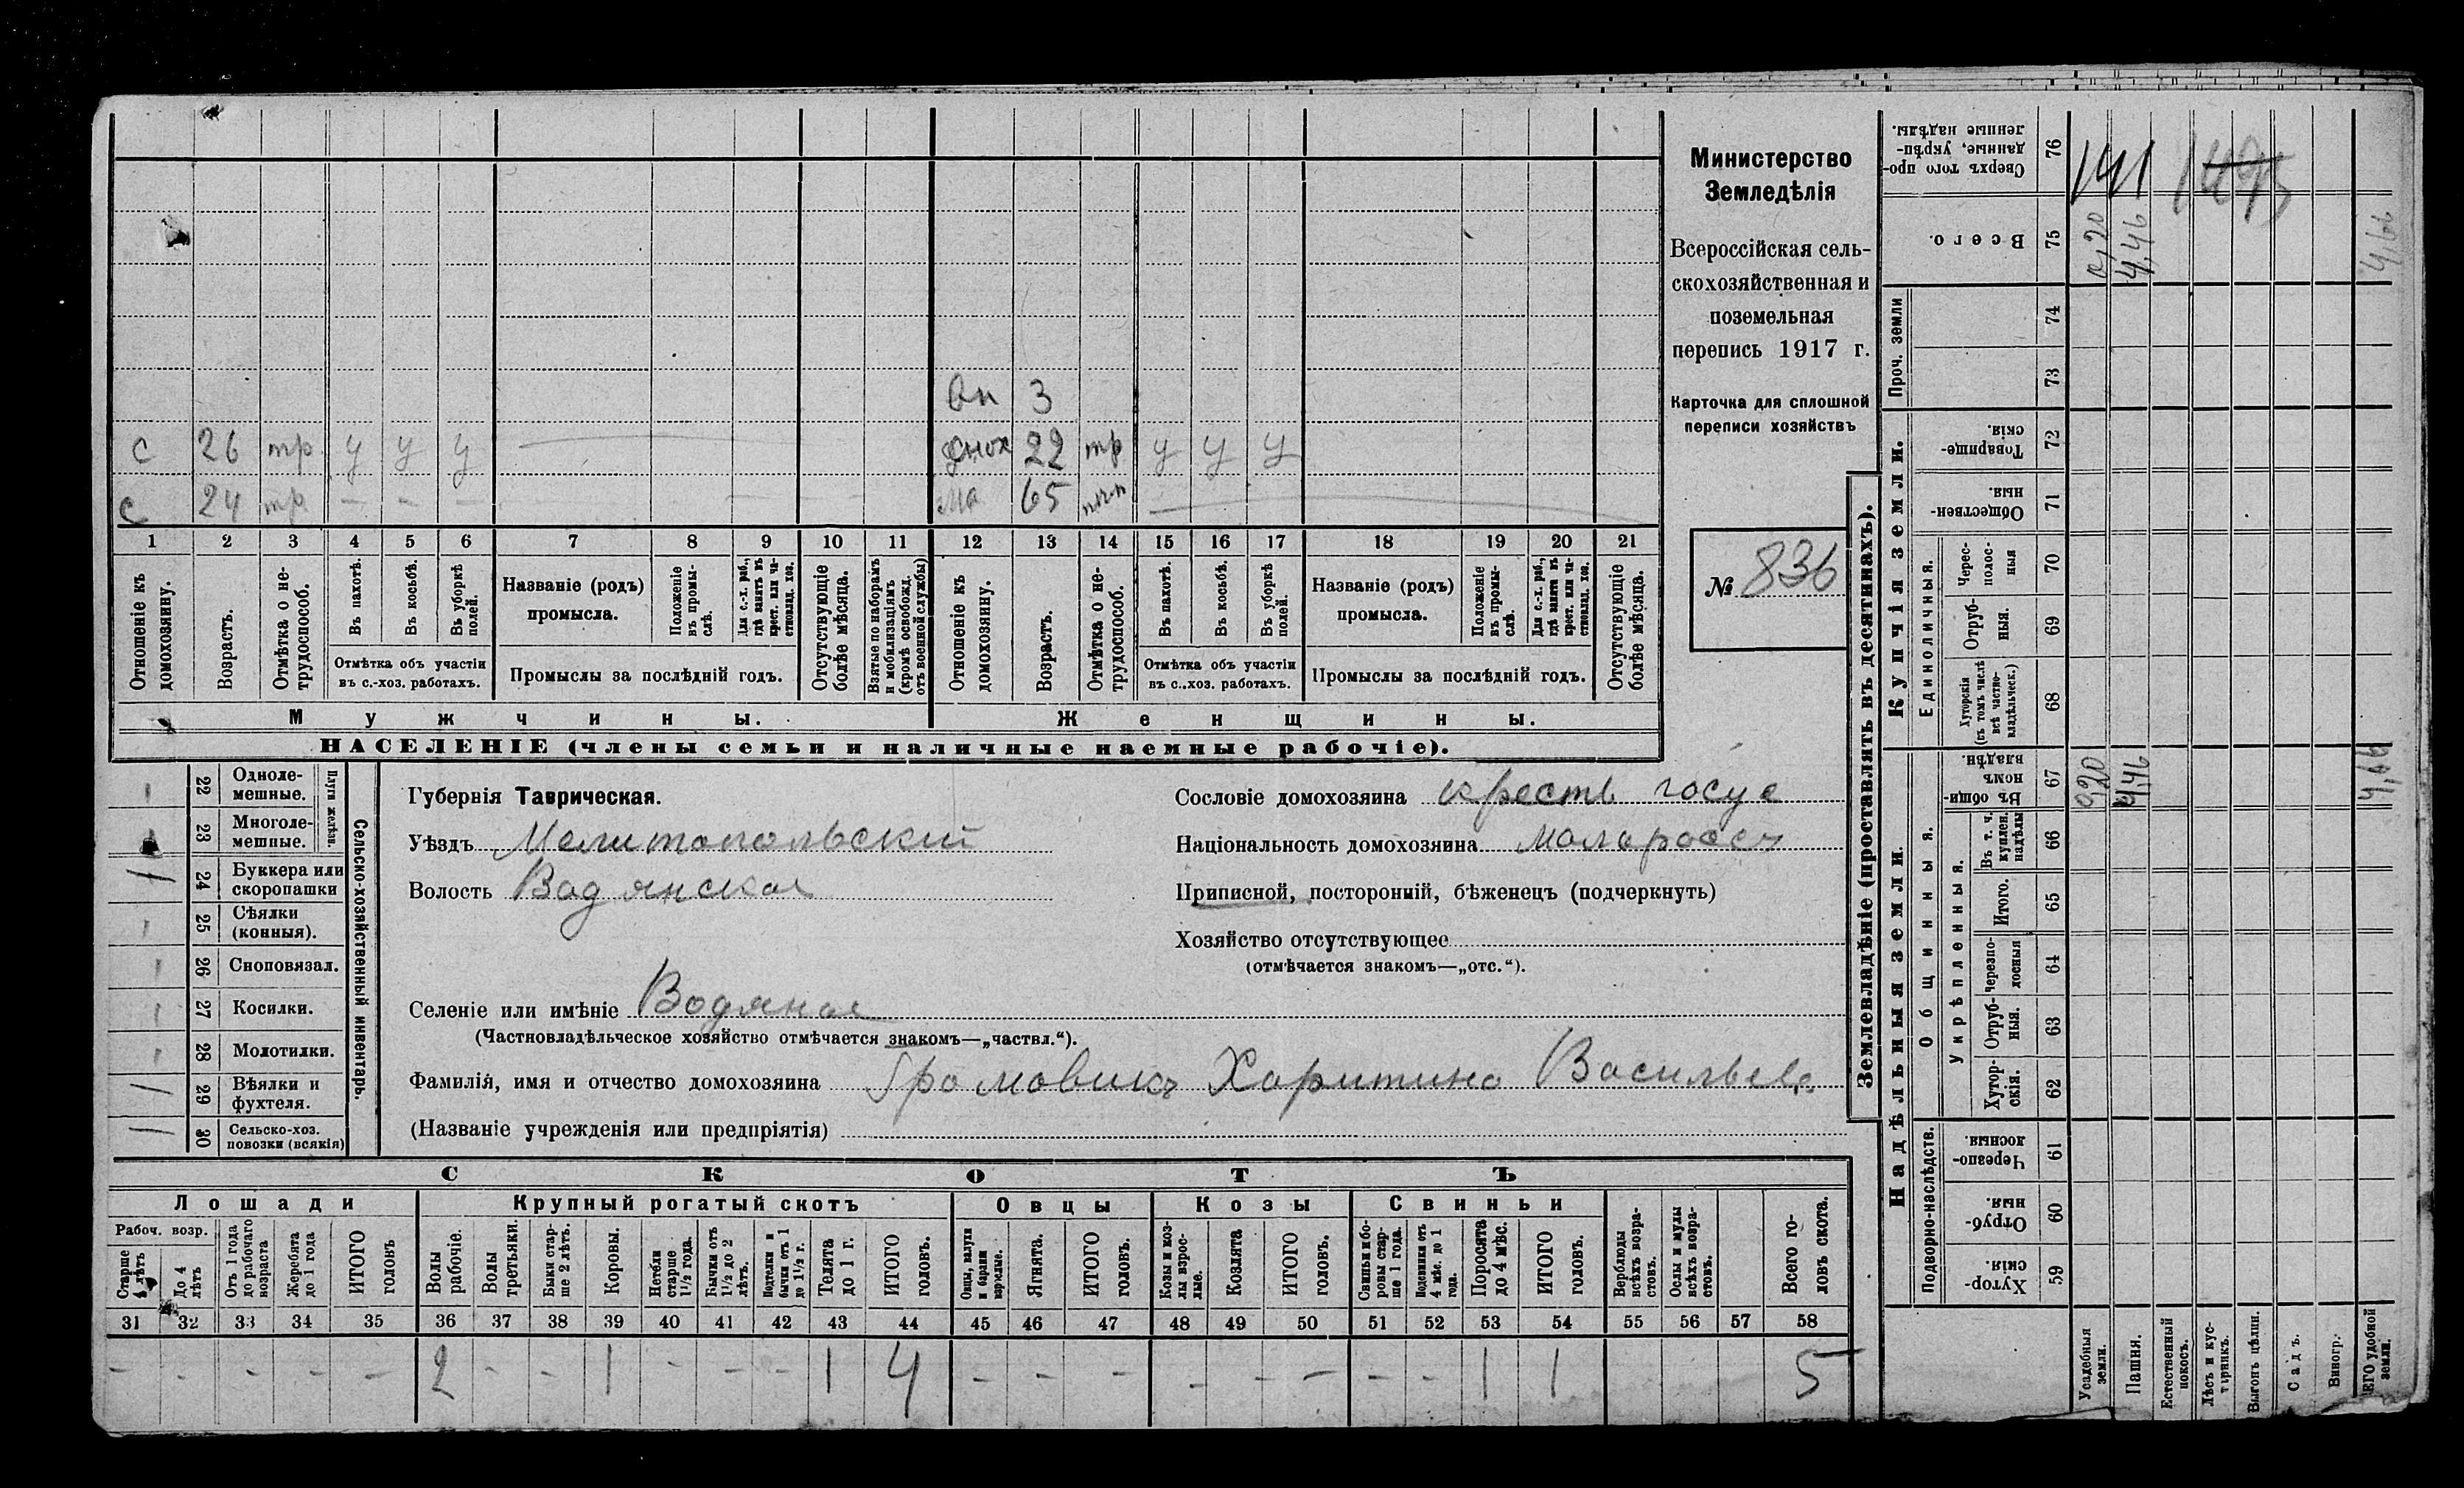 Министерство
Земледѣлія
Всероссійская сель-
скохозяйственная и
поземельная
перепись 1917 г.
Карточка для сплошной
переписи хозяйствъ
№ 836
вн 3
с 26 тр. у у у — 22 тр у у у
с 24 тр. - - - — ма 65
1 2 3 4 5 6 7 8 9 10 11 12 13 14 15 16 17 18 19 20 21
Отношеніе къ домохозяину.
Возрастъ.
Отмѣтка о не-трудоспособ.
Въ пахотѣ.
Въ косьбѣ.
Въ уборкѣ полей.
Отмѣтка объ участіи
въ с.-хоз. работахъ.
Названіе (родъ)
промысла.
Положеніе въ промы-слѣ.
Для с.-х. раб., гдѣ занятъ въ крест. или ча-стновлад. хоз.
Промыслы за послѣдній годъ.
Отсутствующіе болѣе мѣсяца.
Взятые по наборамъ и мобилизаціямъ (кромѣ освобожд. отъ военной службы)
Отношеніе къ домохозяину.
Возрастъ.
Отмѣтка о не-трудоспособ.
Въ пахотѣ.
Въ косьбѣ.
Въ уборкѣ полей.
Отмѣтка объ участіи
въ с..хоз. работахъ.
Названіе (родъ)
промысла.
Положеніе въ промы-слѣ.
Для с.-х. раб., гдѣ занятъ въ крест. или ча-стновлад. хоз.
Промыслы за послѣдній годъ.
Отсутствующіе болѣе мѣсяца.
Мужчины. Женщины.
НАСЕЛЕНІЕ (члены семьи и наличные наемные рабочіе).
Сельско-хозяйственный инвентарь.
Плуги желѣзн.
22 Одноле-мешные.
23 Многоле-мешные.
24 Буккера или скоропашки
25 Сѣялки (конныя).
26 Сноповязал.
27 Косилки.
28 Молотилки.
29 Вѣялки и фухтеля.
30 Сельско-хоз. повозки (всякія)
Губернія Таврическая.
Уѣздъ Мелитопольский
Волость Водянская
Селеніе или имѣніе Водяное
(Частновладѣльческое хозяйство отмѣчается знакомъ—„частвл.“).
Фамилія, имя и отчество домохозяина Громовикъ Харитина Васильева
(Названіе учрежденія или предпріятія)
Сословіе домохозяина крест госуд
Національность домохозяина малоросс
Приписной, посторонній, бѣженецъ (подчеркнуть)
Хозяйство отсутствующее
(отмѣчается знакомъ—„отс.“).
СКОТЪ
Лошади Крупный рогатый скотъ Овцы Козы Свиньи
Рабоч. возр.
Старше 4 лѣтъ
До 4 лѣтъ
Отъ 1 года до рабочаго возраста
Жеребята до 1 года
ИТОГО головъ
Волы рабочіе.
Волы третьяки.
Быки стар-ше 2 лѣтъ.
Коровы.
Нетели старше 1½ года.
Бычки отъ 1½ до 2 лѣтъ.
Подтелки и бычки отъ 1 до 1½ г.
Телята до 1 г.
ИТОГО головъ.
Овцы, валухи и бараны взрослые.
Ягнята.
ИТОГО головъ.
Козы и коз-лы взрос-лые.
Козлята
ИТОГО головъ.
Свиньи и бо-ровы стар-ше 1 года.
Подсвинки отъ 4 мѣс. до 1 года.
Поросята до 4 мѣс.
ИТОГО головъ.
Верблюды всѣхъ возра-стовъ.
Ослы и мулы всѣхъ возра-стовъ.
Всего го-ловъ скота.
31 32 33 34 35 36 37 38 39 40 41 42 43 44 45 46 47 48 49 50 51 52 53 54 55 56 57 58
- - - - - 2 - - 1 - - - 1 4 - - - - - - - - 1 1 5
Землевладѣніе (проставлять въ десятинахъ).
Надѣльныя земли.
Купчія земли.
Проч. земли
Подворно-наслѣдств.
Общинныя.
Укрѣпленныя.
Единоличныя.
76 Сверхъ того про-данные, укрѣп-ленные надѣлы.
75 Всего.
74
73
72 Товарище-скія
71 Обществен-ныя.
70 Черес-полос-ныя
69 Отруб-ныя.
68 Хуторскія (въ томъ числѣ всѣ частно-владѣльческ.)
67 Въ общи-номъ владѣн.
66 Въ т. ч. куплен. надѣлы
65 Итого.
64 Черезпо-лосныя
63 Отруб-ныя.
62 Хутор-скія.
61 Черезпо-лосныя.
60 Отруб-ныя.
59 Хутор-скія.
Усадебныя земли.
Пашня.
Естественный покосъ.
Лѣсъ и кус-тарникъ.
Выгонъ цѣлин.
Садъ.
Виногр.
141
0,20 4,46 4,66
0,20 4,46 4,66